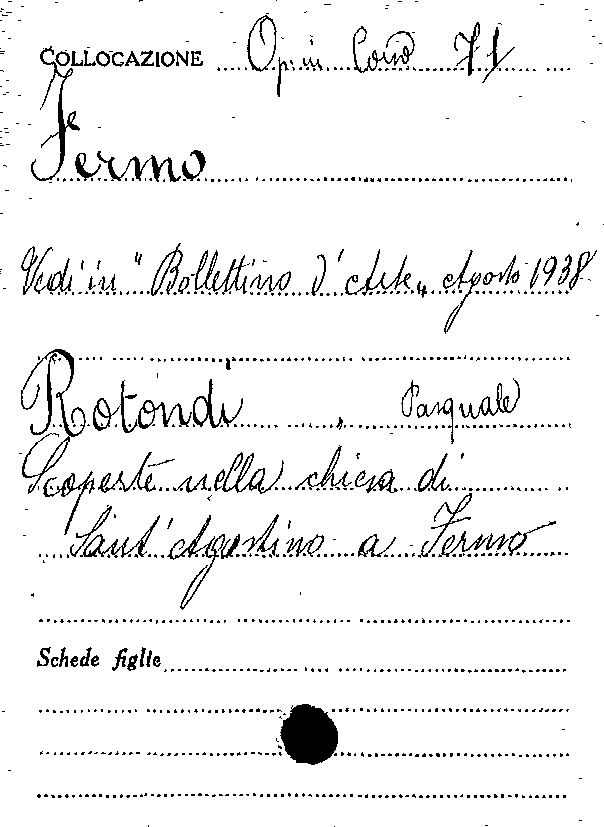 COLLOCAZIONE Op. in 71
Fermo
Vedi in "Bollettino d'Arte„ Agosto 1938
Rotondi, Pasquale
Scoperte nella chiesa di
Sant'Agostino a Fermo
Schede figlie